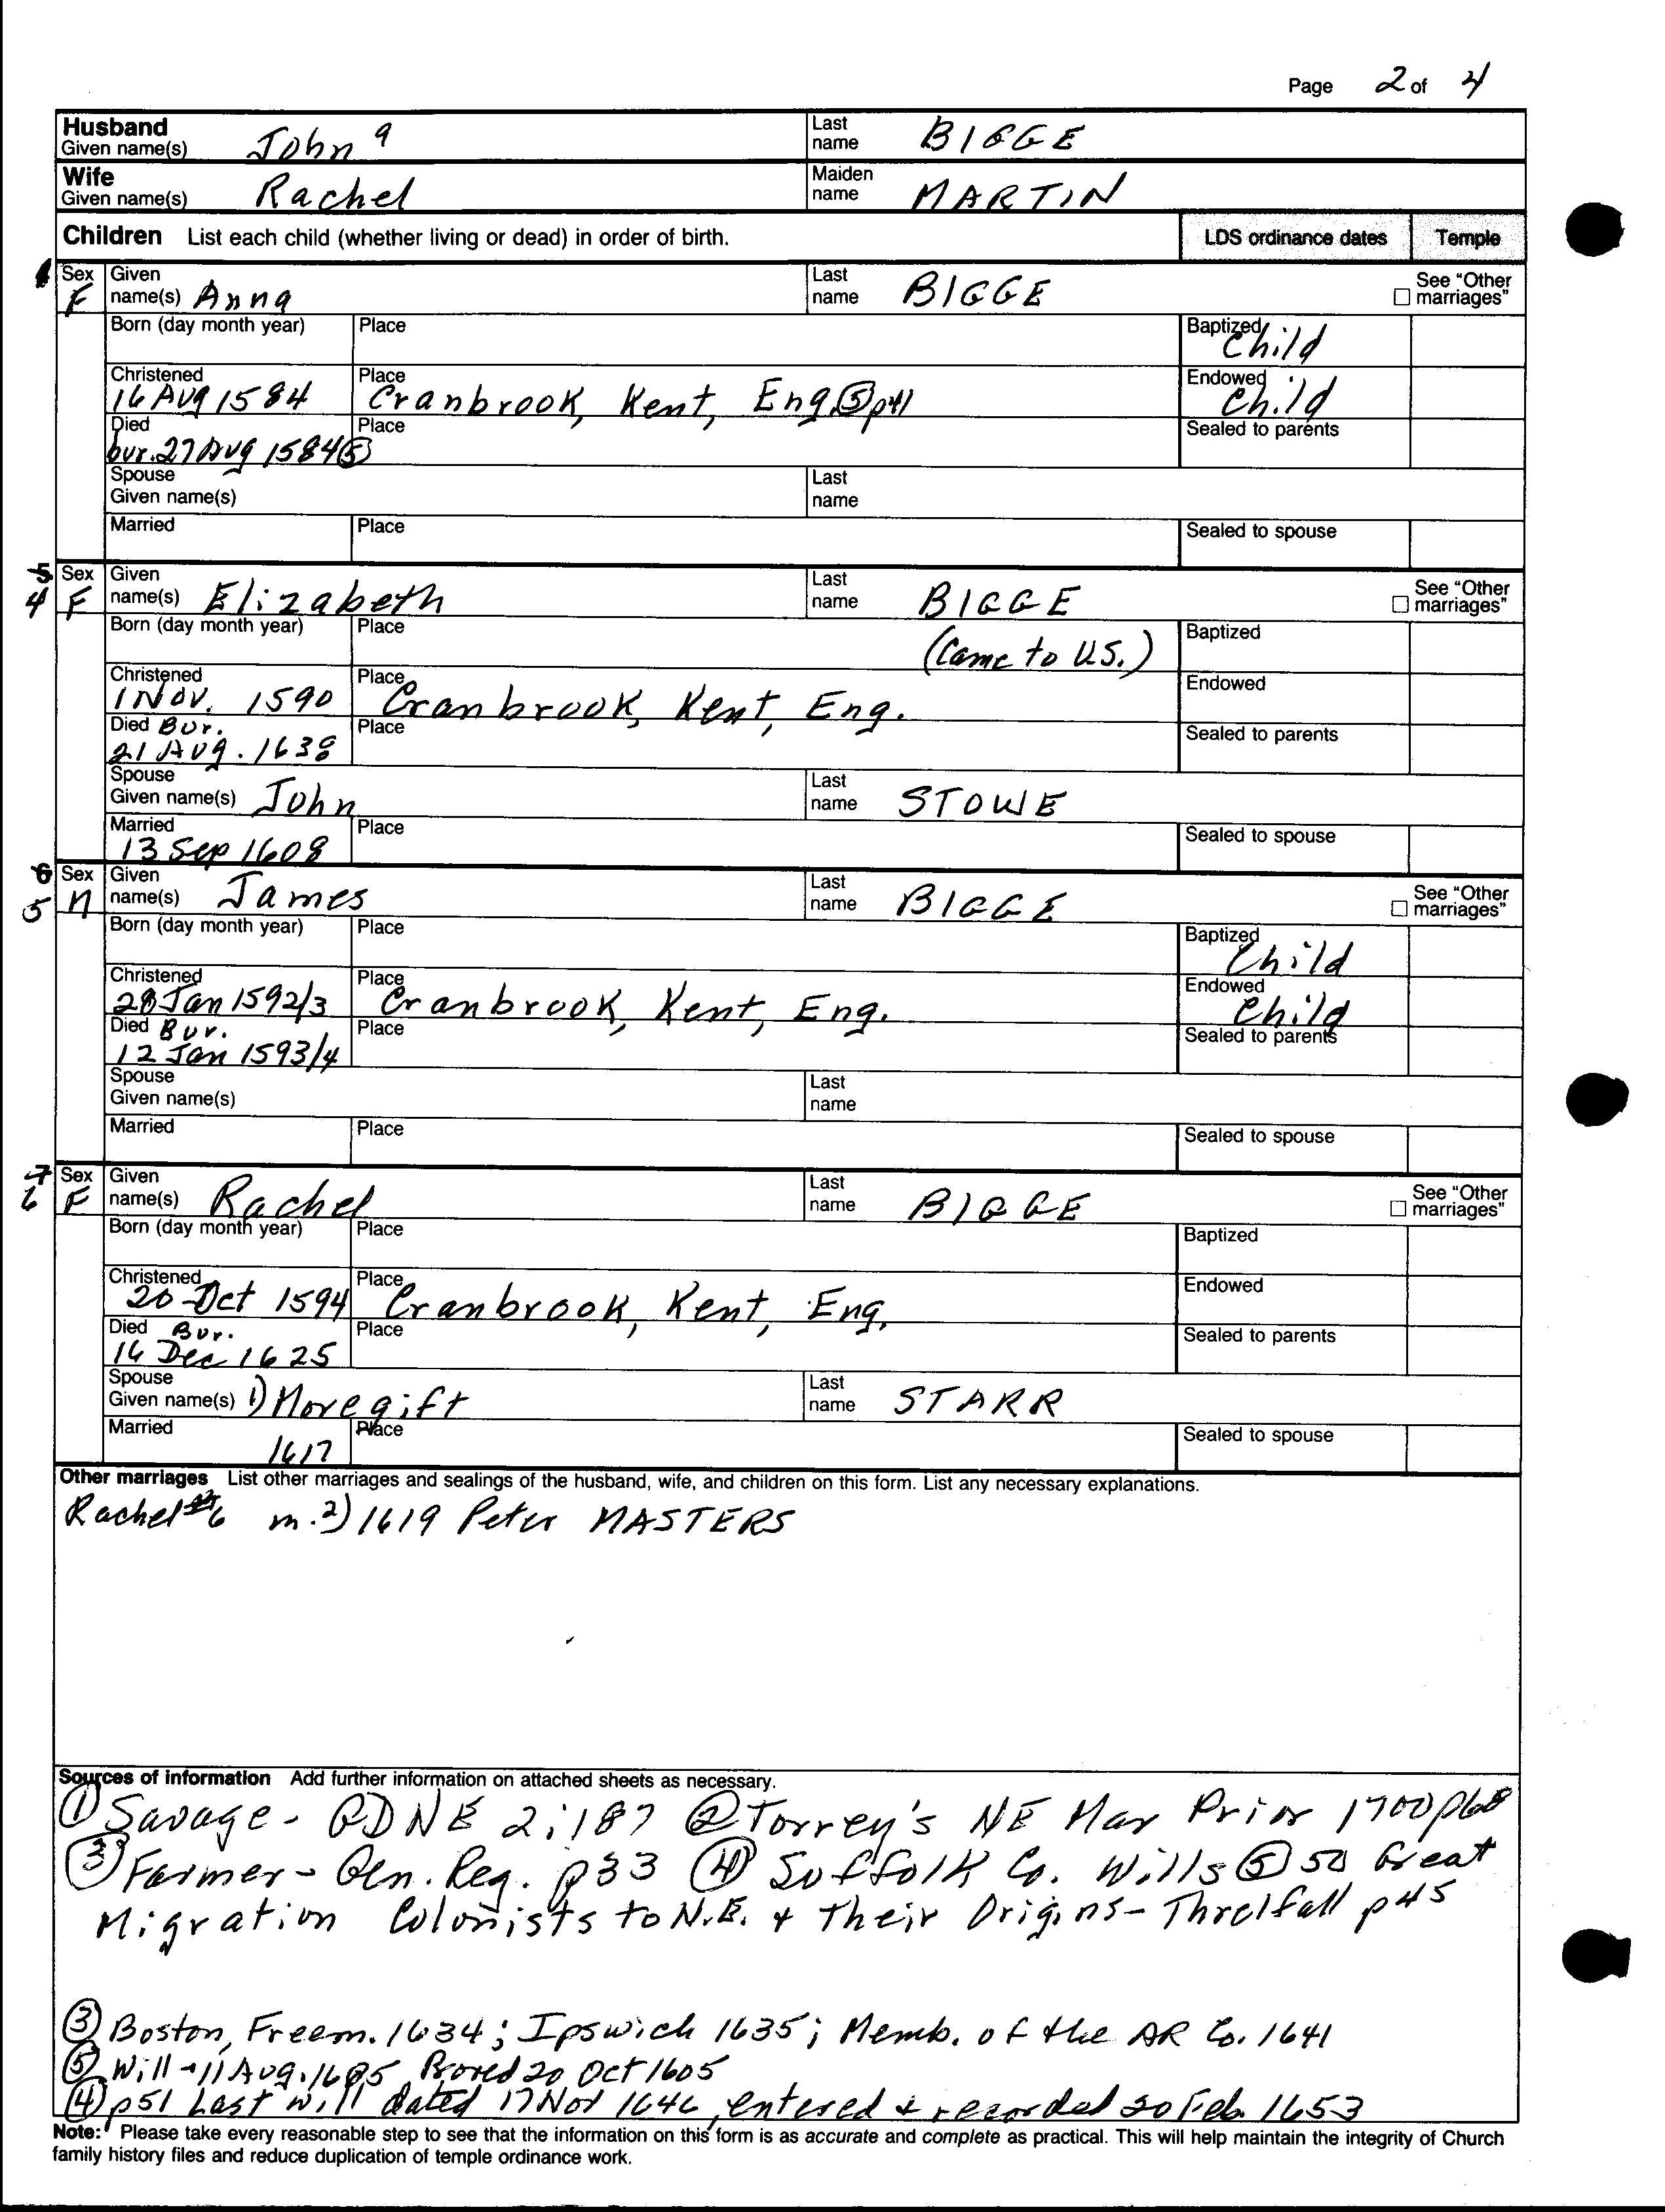 Page 2 of 4
Husband Given name(s) John 9 Last name BIGGE
Wife Given name(s) Rachel Maiden name MARTIN
Children List each child (whether living or dead) in order of birth. LDS ordinance dates Temple
Sex F Given name(s) Anna Last name BIGGE See "Other marriages"
Born (day month year) Place Baptized Child
Christened 16 Aug 1584 Place Cranbrook, Kent, Eng. ⑤ p41 Endowed Child
Died bur. 27 Aug 1584 ⑤ Place Sealed to parents
Spouse Given name(s) Last name
Married Place Sealed to spouse
5 4 Sex F Given name(s) Elizabeth Last name BIGGE See "Other marriages"
Born (day month year) Place (Came to U.S.) Baptized
Christened 1 Nov. 1590 Place Cranbrook, Kent, Eng. Endowed
Died Bur. 21 Aug. 1638 Place Sealed to parents
Spouse Given name(s) John Last name STOWE
Married 13 Sep 1608 Place Sealed to spouse
6 5 Sex M Given name(s) James Last name BIGGE See "Other marriages"
Born (day month year) Place Baptized Child
Christened 28 Jan 1592/3 Place Cranbrook, Kent, Eng. Endowed Child
Died Bur. 12 Jan 1593/4 Place Sealed to parents
Spouse Given name(s) Last name
Married Place Sealed to spouse
7 6 Sex F Given name(s) Rachel Last name BIGGE See "Other marriages"
Born (day month year) Place Baptized
Christened 20 Oct 1594 Place Cranbrook, Kent, Eng. Endowed
Died Bur. 16 Dec 1625 Place Sealed to parents
Spouse Given name(s) 1) Moregift Last name STARR
Married 1617 Place Sealed to spouse
Other marriages List other marriages and sealings of the husband, wife, and children on this form. List any necessary explanations.
Rachel 6 m. 2) 1619 Peter MASTERS
Sources of information Add further information on attached sheets as necessary.
① Savage - GDNE 2:187 ② Torrey's NE Mar Prior 1700 p68
③ Farmer - Gen. Reg. p33 ④ Suffolk Co. Wills ⑤ 50 Great
Migration Colonists to N.E. + Their Origins - Threlfall p45
③ Boston, Freem. 1634; Ipswich 1635; Memb. of the AR Co. 1641
⑤ Will - 11 Aug. 1605 Proved 20 Oct 1605
④ p51 Last will dated 17 Nov 1646, entered + recorded 20 Feb. 1653
Note: Please take every reasonable step to see that the information on this form is as accurate and complete as practical. This will help maintain the integrity of Church
family history files and reduce duplication of temple ordinance work.